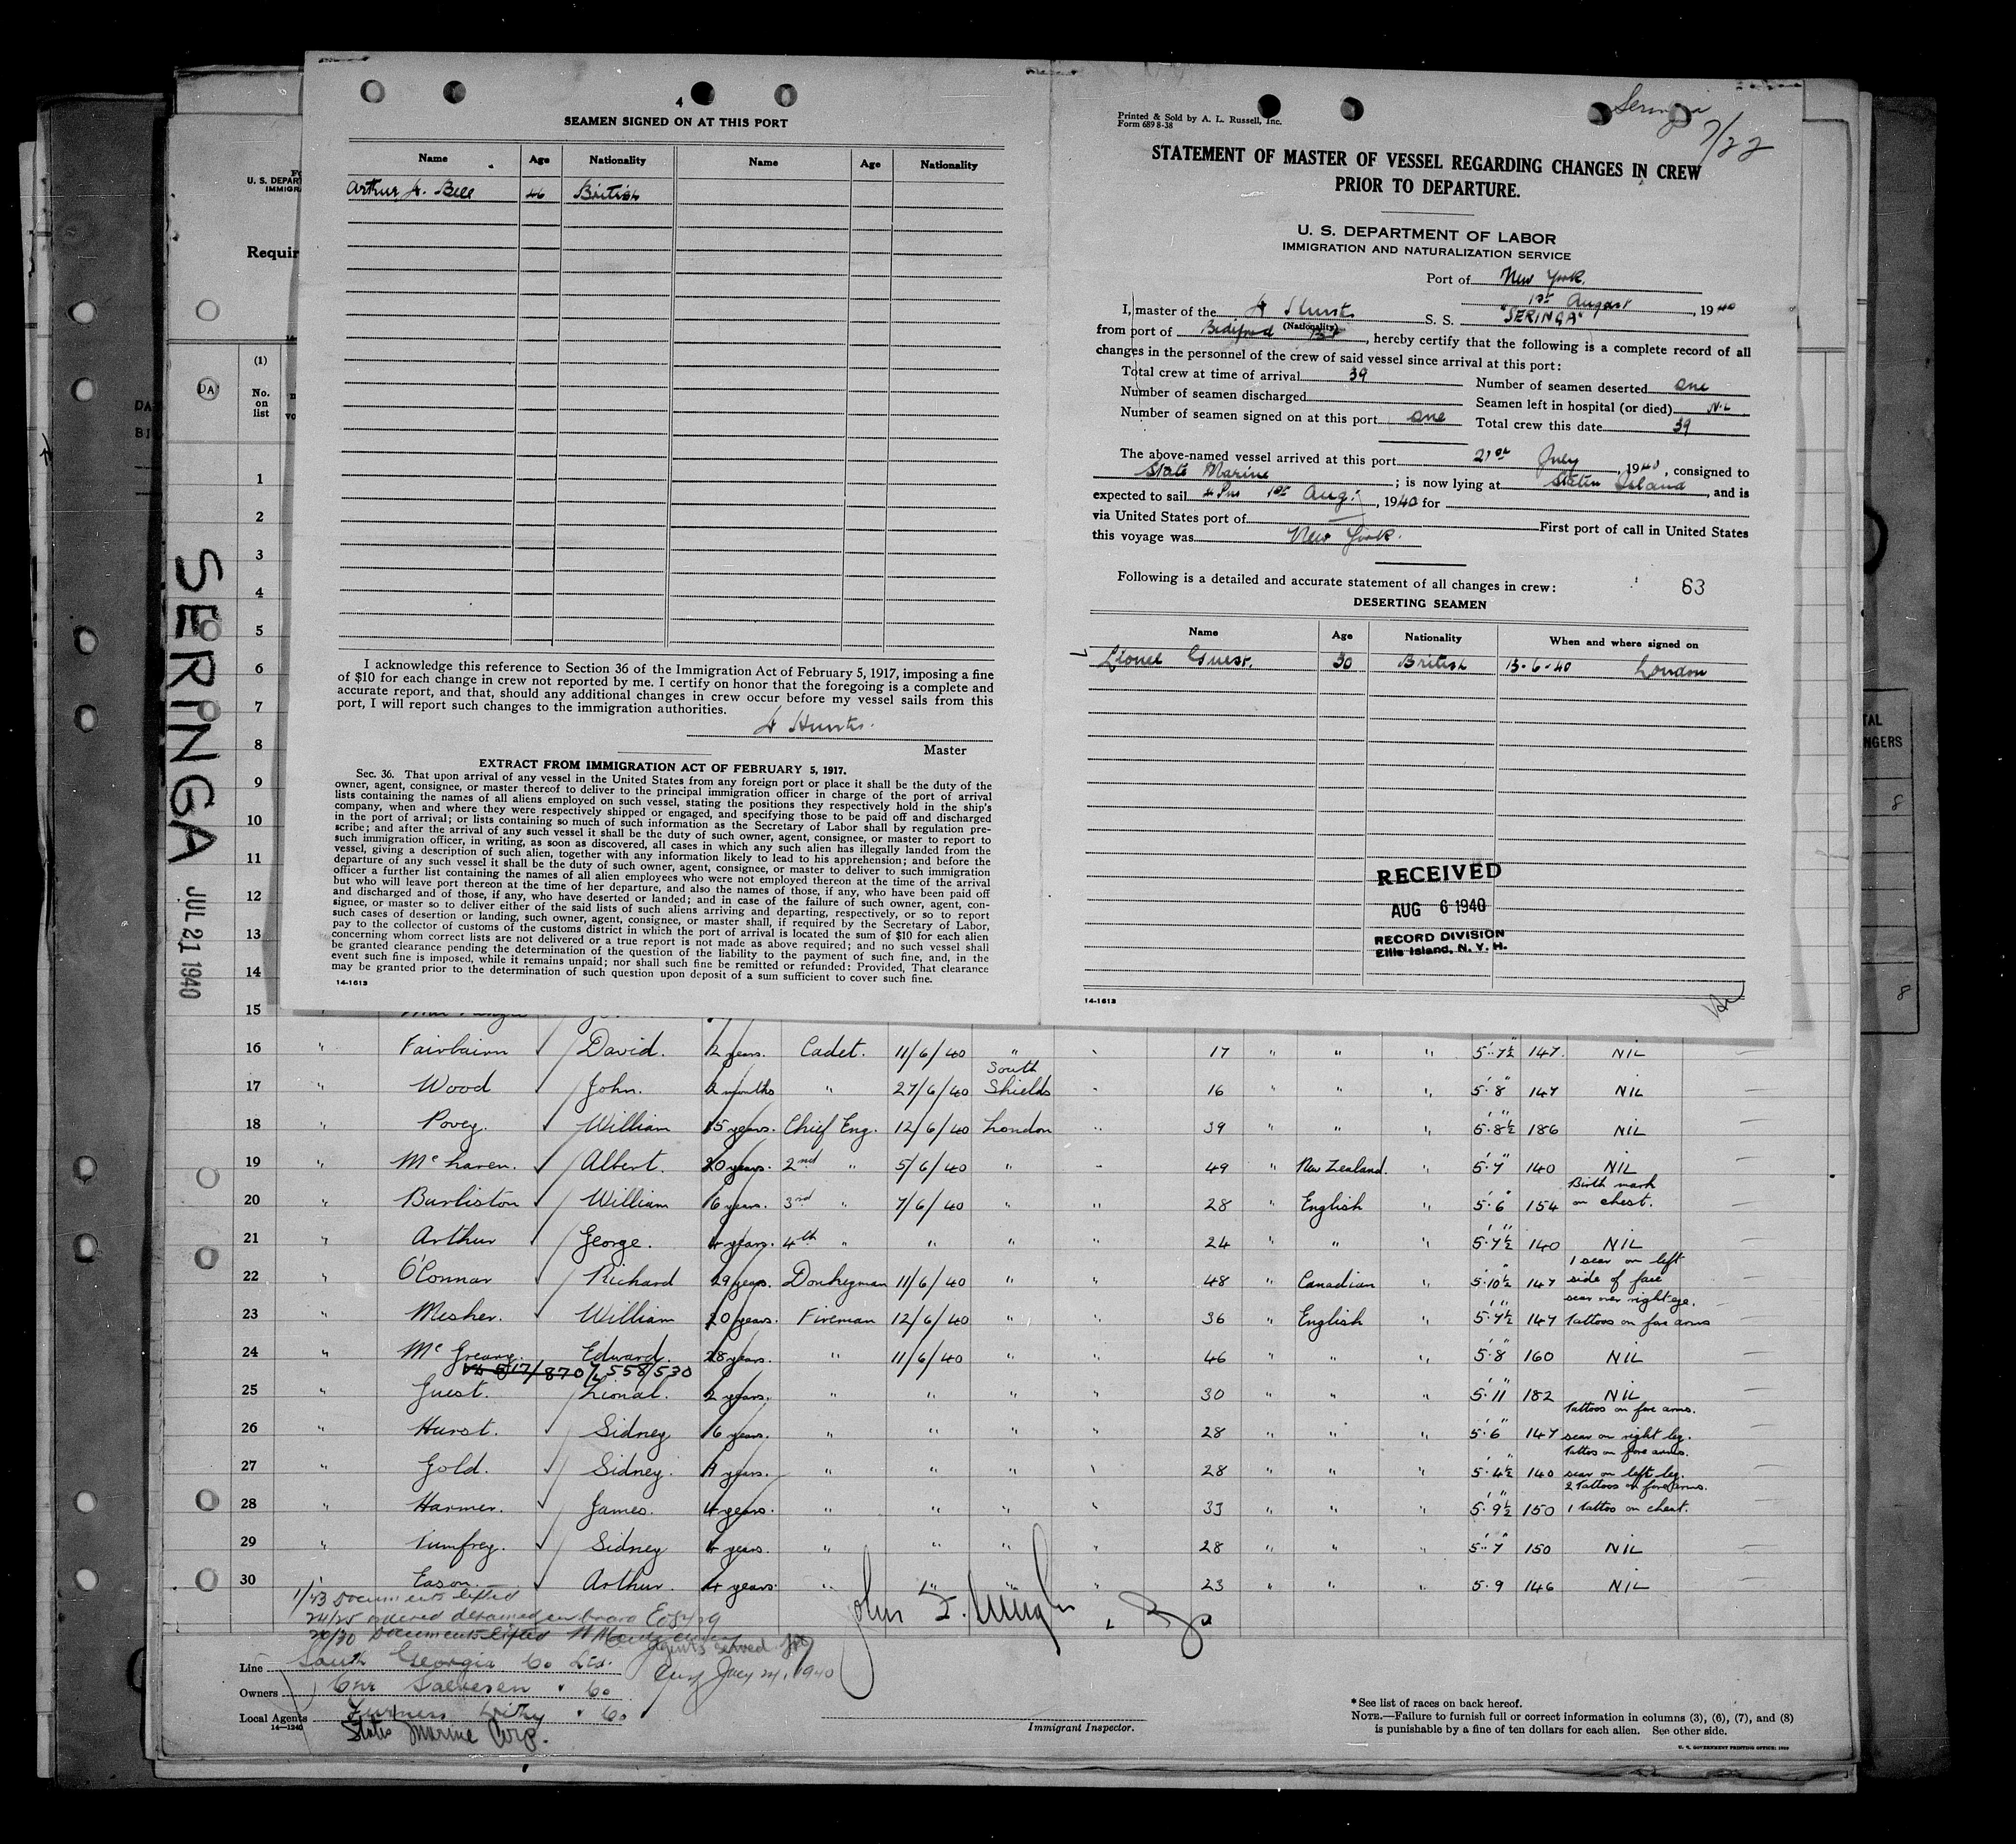 4
SEAMEN SIGNED ON AT THIS PORT
Name Age Nationality Name Age Nationality
Arthur H. Bell 46 British
I acknowledge this reference to Section 36 of the Immigration Act of February 5, 1917, imposing a fine
of $10 for each change in crew not reported by me. I certify on honor that the foregoing is a complete and
accurate report, and that, should any additional changes in crew occur before my vessel sails from this
port, I will report such changes to the immigration authorities.
Master
EXTRACT FROM IMMIGRATION ACT OF FEBRUARY 5, 1917.
Sec. 36. That upon arrival of any vessel in the United States from any foreign port or place it shall be the duty of the
owner, agent, consignee, or master thereof to deliver to the principal immigration officer in charge of the port of arrival
lists containing the names of all aliens employed on such vessel, stating the positions they respectively hold in the ship's
company, when and where they were respectively shipped or engaged, and specifying those to be paid off and discharged
in the port of arrival; or lists containing so much of such information as the Secretary of Labor shall by regulation pre-
scribe; and after the arrival of any such vessel it shall be the duty of such owner, agent, consignee, or master to report to
such immigration officer, in writing, as soon as discovered, all cases in which any such alien has illegally landed from the
vessel, giving a description of such alien, together with any information likely to lead to his apprehension; and before the
departure of any such vessel it shall be the duty of such owner, agent, consignee, or master to deliver to such immigration
officer a further list containing the names of all alien employees who were not employed thereon at the time of the arrival
but who will leave port thereon at the time of her departure, and also the names of those, if any, who have been paid off
and discharged and of those, if any, who have deserted or landed; and in case of the failure of such owner, agent, con-
signee, or master so to deliver either of the said lists of such aliens arriving and departing, respectively, or so to report
such cases of desertion or landing, such owner, agent, consignee, or master shall, if required by the Secretary of Labor,
pay to the collector of customs of the customs district in which the port of arrival is located the sum of $10 for each alien
concerning whom correct lists are not delivered or a true report is not made as above required; and no such vessel shall
be granted clearance pending the determination of the question of the liability to the payment of such fine, and, in the
event such fine is imposed, while it remains unpaid; nor shall such fine be remitted or refunded: Provided, That clearance
may be granted prior to the determination of such question upon deposit of a sum sufficient to cover such fine.
14-1613
Seringa
7/22
Printed & Sold by A. L. Russell, Inc.
Form 689 8-38
STATEMENT OF MASTER OF VESSEL REGARDING CHANGES IN CREW
PRIOR TO DEPARTURE.
U. S. DEPARTMENT OF LABOR
IMMIGRATION AND NATURALIZATION SERVICE
Port of New York.
1st August, 1940
I, master of the S. S. "SERINGA"
(Nationality)
from port of , hereby certify that the following is a complete record of all
changes in the personnel of the crew of said vessel since arrival at this port:
Total crew at time of arrival 39 Number of seamen deserted one
Number of seamen discharged Seamen left in hospital (or died) NIL
Number of seamen signed on at this port one Total crew this date 39
The above-named vessel arrived at this port 21st July, 1940, consigned to
State Marine ; is now lying at Staten Island, and is
expected to sail 1st Aug:, 1940 for
via United States port of First port of call in United States
this voyage was New York.
Following is a detailed and accurate statement of all changes in crew: 63
DESERTING SEAMEN
Name Age Nationality When and where signed on
Lionel Guest. 30 British 13-6-40 London
RECEIVED
AUG 6 1940
RECORD DIVISION
Ellis Island, N. Y. H.
14-1613
U. S. DEPAR
IMMIGRA
Requir
(1)
No.
on
list
SERINGA JUL 21 1940
DA
TAL
NGERS
8
8
1
2
3
4
5
6
7
8
9
10
11
12
13
14
15
16 " Fairbairn David. 2 years. Cadet. 11/6/40 " " 17 " " " 5'.7½" 147 NIL —
17 " Wood John. 2 months " 27/6/40 South Shields " 16 " " " 5'.8" 147 NIL —
18 " Povey. William 15 years. Chief Eng. 12/6/40 London " 39 " " " 5'.8½" 186 NIL —
19 " Albert. 20 years. 2nd " 5/6/40 " " 49 " New Zealand. " 5'.7" 140 NIL —
20 " Burliston William 6 years. 3rd " 7/6/40 " " 28 " English " 5'.6" 154 Birth mark on chest. —
21 " Arthur George. 4 years. 4th " " " " 24 " " " 5'.7½" 140 NIL —
22 " O'Connar Richard 29 years. Donkeyman 11/6/40 " " 48 " Canadian " 5'.10½" 147 1 scar on left side of face scar over right eye. —
23 " Mesher. William 20 years. Fireman 12/6/40 " " 36 " English " 5'.7½" 147 Tattoos on fore arms
24 " Edward. 28 years. " 11/6/40 " " 46 " " " 5'.8" 160 NIL —
558/530
25 " Guest. Lional. 2 years. " " " " 30 " " " 5'.11" 182 NIL —
26 " Hurst. Sidney 6 years. " " " " 28 " " " 5'.6" 147 Tattoos on fore arms. scar on right leg. —
27 " Gold. Sidney. " " " " 28 " " " 5'.4½" 140 Tattos on fore arms. scar on left leg. —
28 " Harmer. James. 4 years. " " " " 33 " " " 5'.9½" 150 2 Tattoos on fore arms. 1 tattoo on chest. —
29 " Sidney 4 years. " " " " 28 " " " 5'.7" 150 NIL —
30 " Eason. Arthur. 4 years. " " " " 23 " " " 5.9 146 NIL —
Documents lifted
24/25 ordered detained on board
Documents lifted
Agents served
Line South Georgia Co Ltd.
Owners Chr Salvesen & Co
Local Agents Furness Withy & Co
14—1240
States Marine Corp.
Immigrant Inspector.
* See list of races on back hereof.
NOTE.—Failure to furnish full or correct information in columns (3), (6), (7), and (8)
is punishable by a fine of ten dollars for each alien. See other side.